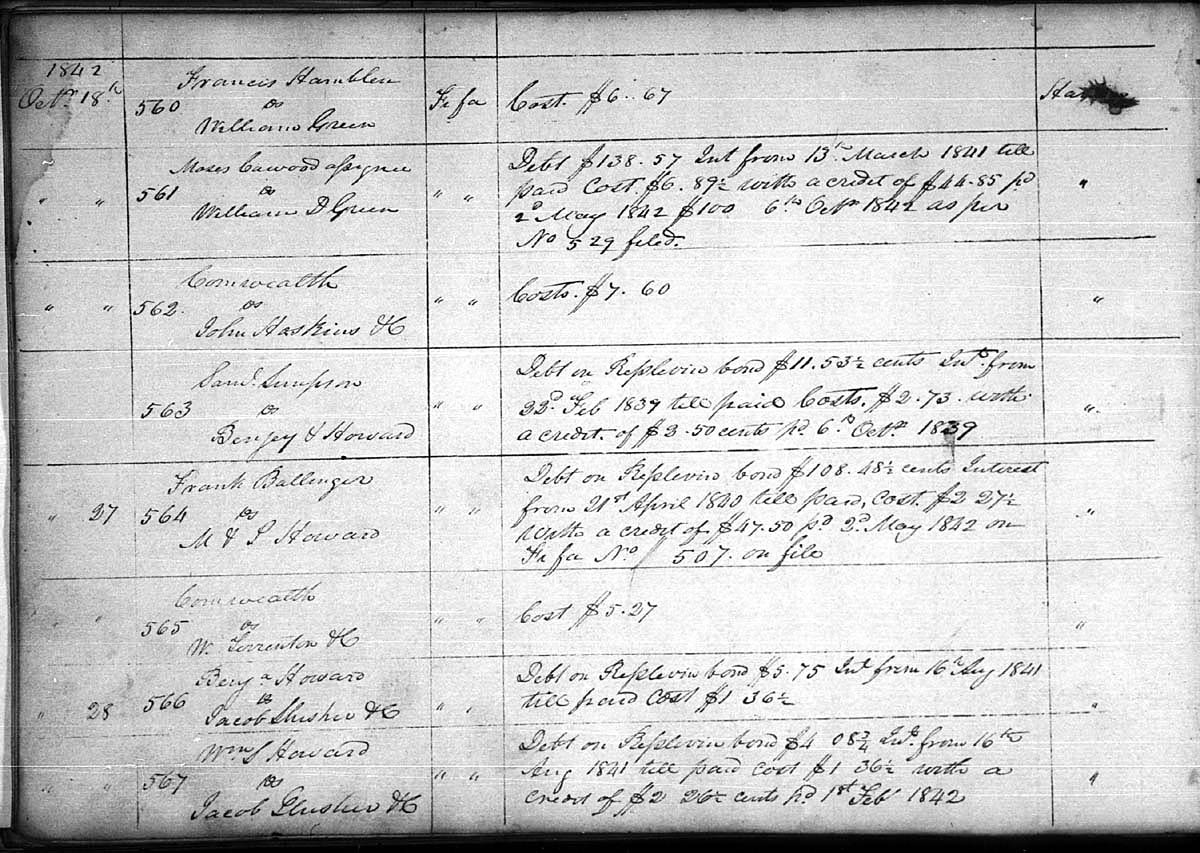 1842
Octr 18th 560 Francis Hamblen
vs
William Green
Fi fa
Cost. $6..67
561 Moses Cawood assignee
vs
William D Green
" "
" "
Debt $138.57 Int from 13th March 1841 till
paid Cost $6.89½ with a credit of $44.85 pd
2d May 1842 $100 6th Octr 1842 as per
No 529 filed.
"
" "
562. Comwealth
vs
John Haskins &C
" "
Costs. $7.60
"
563 Saml. Simpson
vs
Benjey & Howard
" "
Debt on Replevin bond $11.53½ cents Intt. from
22d. Feb 1839 till paid Costs. $2.73. with
a credit. of $3.50 cents pd 6th Octr 1839
"
" 27
564 Frank Ballinger
vs
M & J Howard
" "
Debt on Replevin bond $108.48½ cents Interest
from 21st April 1840 till paid, cost. $2 27½
With a credit of $47.50 pd 2d. May 1842 on
Fi fa No 507. on file
"
" "
565 Comwealth
vs
W. Torrenton &C
" "
Cost $5.27
"
" 28
566 Benjn Howard
vs
Jacob Slusher &C
" "
Debt on Replevin bond $5.75 Int from 16th Aug 1841
till paid Cost $1 36½
"
" "
567 Wm S Howard
vs
Jacob Slusher &C
" "
Debt on Replevin bond $4 08¾ Int. from 16th
Aug 1841 till paid cost $1 36½ with a
credit of $2 26½ cents pd 1st Feb 1842
"